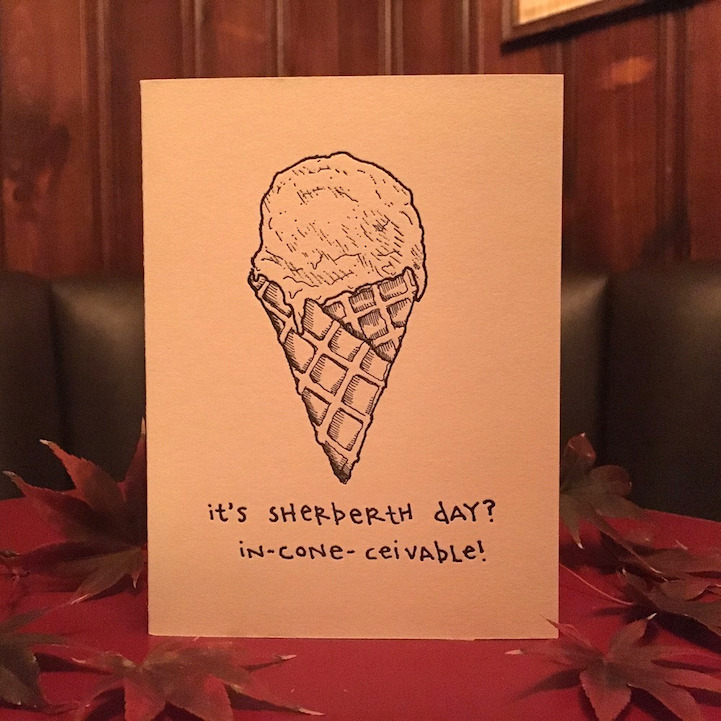 it's SHERBERTH DAY?
iN-CONE-CEiVABLE!